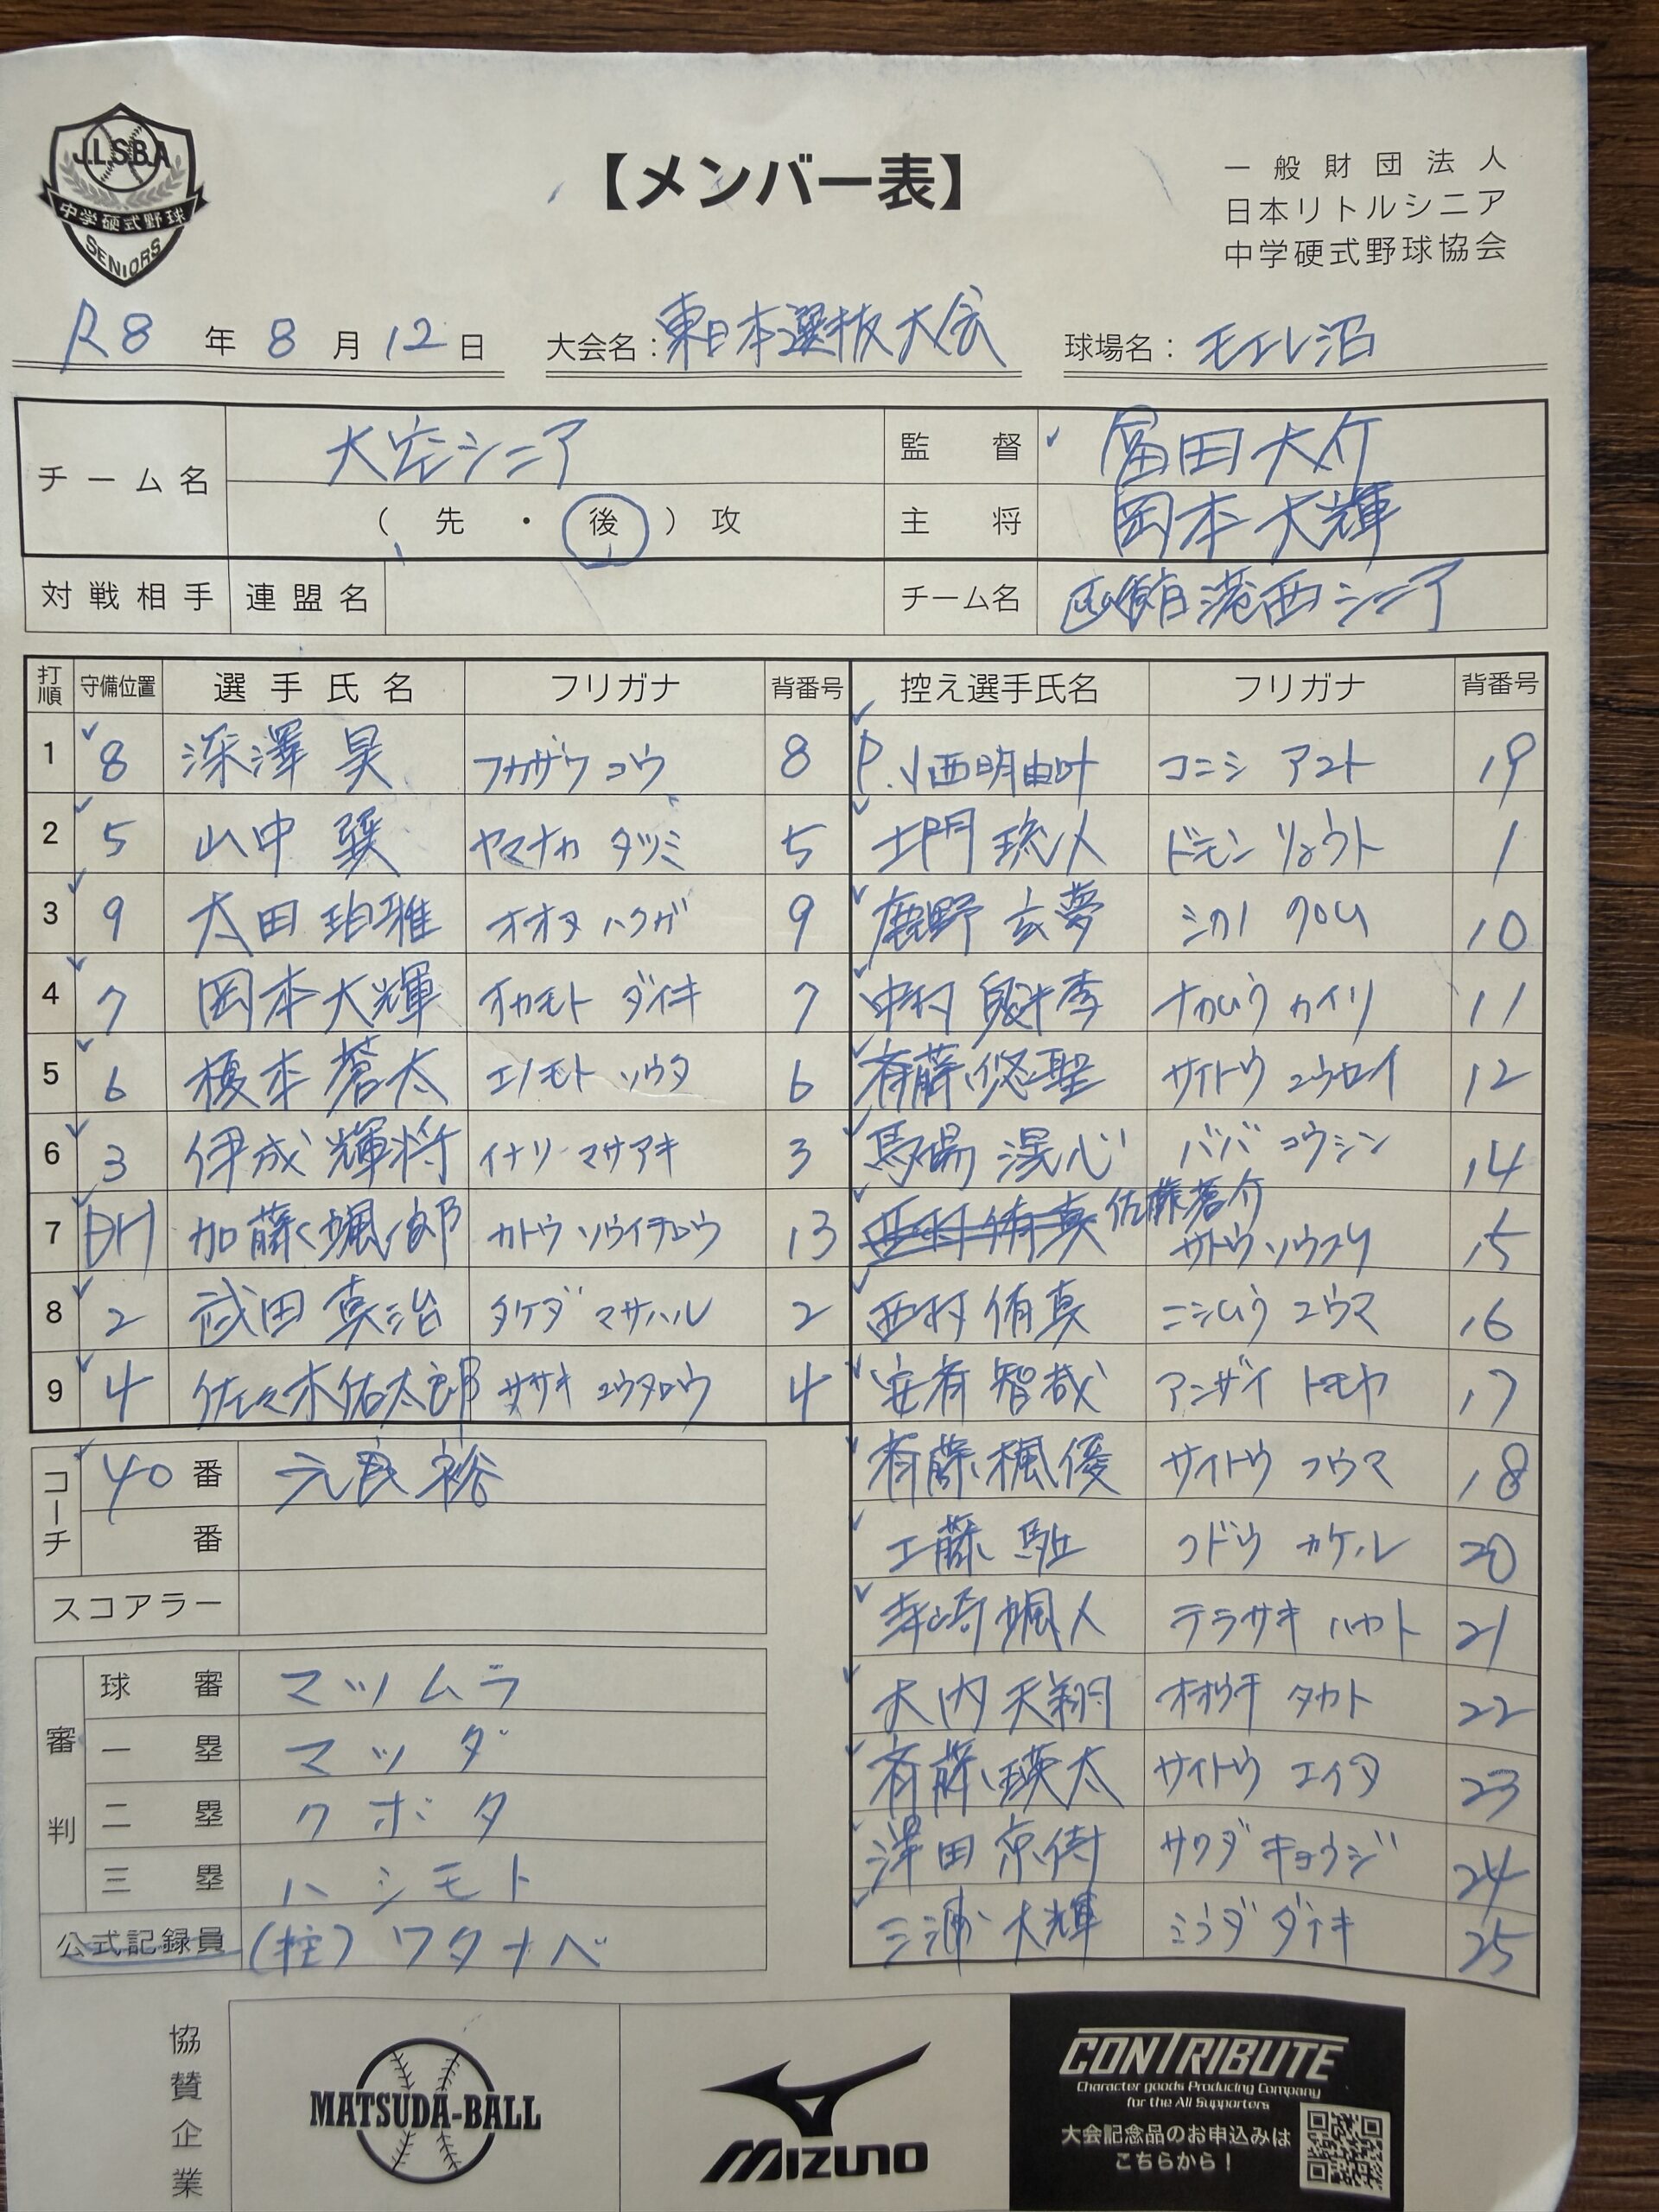 J.L.S.B.A
中学硬式野球
SENIORS
【メンバー表】
一般財団法人
日本リトルシニア
中学硬式野球協会
R8年8月12日 大会名：東日本選抜大会 球場名：モエレ沼
チーム名 大空シニア 監督 冨田大介
（先・後）攻 主将 岡本大輝
対戦相手 連盟名 チーム名 函館港西シニア
打順 守備位置 選手氏名 フリガナ 背番号 控え選手氏名 フリガナ 背番号
1 8 深澤 昊 フカザワ コウ 8 P. 小西明由叶 コニシ アユト 19
2 5 山中 巽 ヤマナカ タツミ 5 土門 琉人 ドモン リュウト 1
3 9 太田 珀雅 オオタ ハクガ 9 鹿野 玄夢 シカノ クロム 10
4 7 岡本大輝 オカモト ダイキ 7 中村 魁李 ナカムラ カイリ 11
5 6 榎本蒼太 エノモト ソウタ 6 斉藤悠聖 サイトウ ユウセイ 12
6 3 伊成輝将 イナリ マサアキ 3 馬場 滉心 ババ コウシン 14
7 DH 加藤颯一郎 カトウ ソウイチロウ 13 西村侑真 佐藤蒼介 サトウ ソウスケ 15
8 2 武田真治 タケダ マサハル 2 西村 侑真 ニシムラ ユウマ 16
9 4 佐々木佑太郎 ササキ ユウタロウ 4 安斉 智哉 アンザイ トモヤ 17
斉藤楓優 サイトウ フウマ 18
工藤 駈 クドウ カケル 20
寺崎颯人 テラサキ ハヤト 21
大内天翔 オオウチ タカト 22
斉藤瑛太 サイトウ エイタ 23
澤田京侍 サワダ キョウジ 24
三浦 大輝 ミウラ ダイキ 25
コーチ 40番 元良裕
番
スコアラー
審判 球審 マツムラ
一塁 マツダ
二塁 クボタ
三塁 ハシモト
公式記録員 (控) ワタナベ
協賛企業
MATSUDA-BALL
MIZUNO
CONTRIBUTE
Character goods Producing Company
for the All Supporters
大会記念品のお申込みは
こちらから！